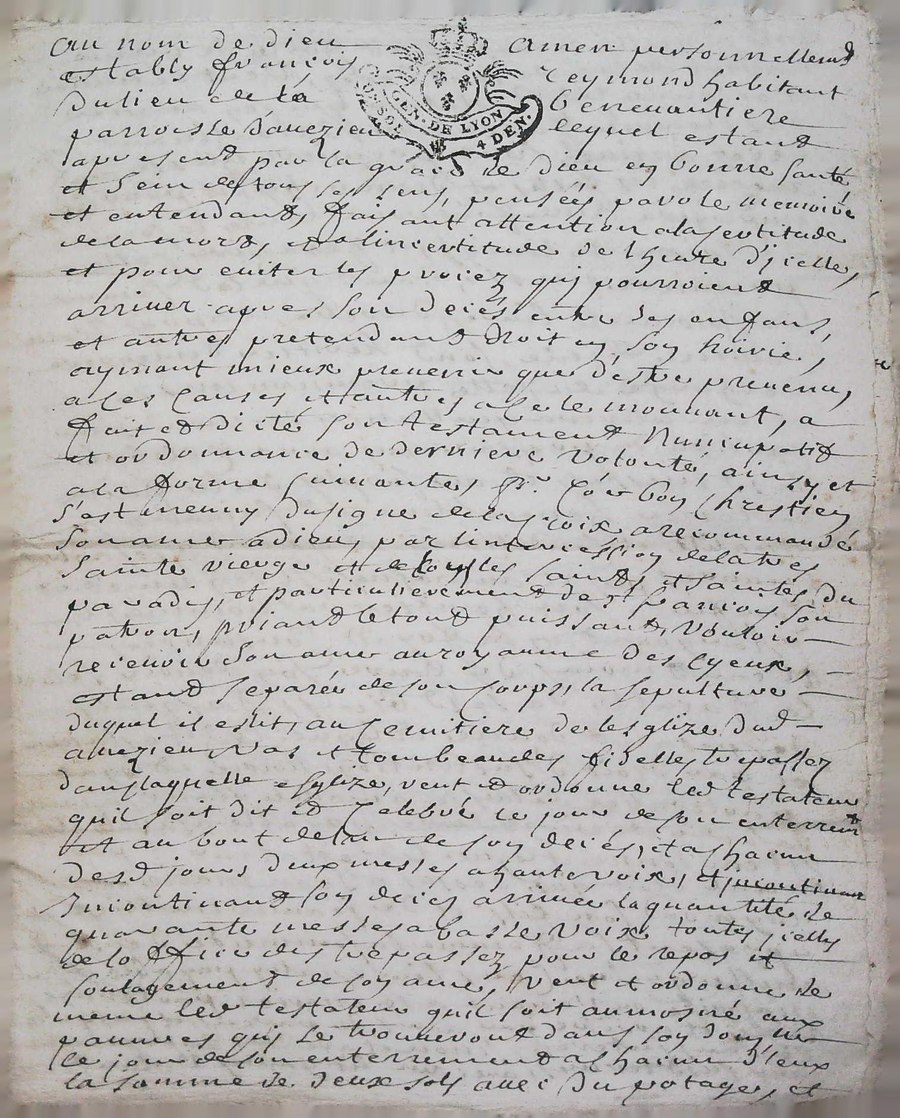 au nom de dieu amen personnellemt
estably françois reymond habitant
du lieu de la
parroisse d'auezieu lequel estant
a present par la grace de dieu en bonne santé
et sein de tous ses sens, pensées parole memoire
et entendant, faisant attention a la sertitude
de la mort, et a lincertitude de lheure d'jcelle,
et pour euiter les procez quj pourroient
arriuer apres son decés entre ses enfans,
et autres pretendant droit en son hoirie,
aymant mieux preuenir que d'estre preuenu,
a ces causes et autres a ce le mouuant, a
fait et dicté son testament Nuncupatif
et ordonnance de derniere volonté, ainsy et
a la forme suiuante, pr. Co'e bon Chrestien
s'est meuny du signe de la croix a recommandé
son ame a dieu, par lintercession de la tres
sainte vierge et de tous les saints et saintes du
paradis, et particulierement de st françois son
patron, priant le tout puissant, vouloir
receuoir son ame au royaume des cyeux,
estant separée de son corps, la sepulture
duquel il eslit, au cemitiere de lesglize dud
auezieu Vas et tombeau des fidelles trepassez
dans laquelle esglize, veut et ordonne led testateur
quil soit dit et Celebré le jour de son enterremt
et au bout de lan de son decés, et a chacun
desd jours deux messes a haute voix, et jncontinant
Jncontinant son deces arriuée la quantité de
quarante messes a basse voix, toutes jcelles
de lo ffice des trepassez pour le repos et
soulagement de son ame, veut et ordonne de
meme led testateur quil soit aumosné aux
pauures quj se trouueront dans son
le jour de son enterrement a chacun d'eux
la somme de deux sols auec du potage, et
GEN. DE LYON
4 DEN.